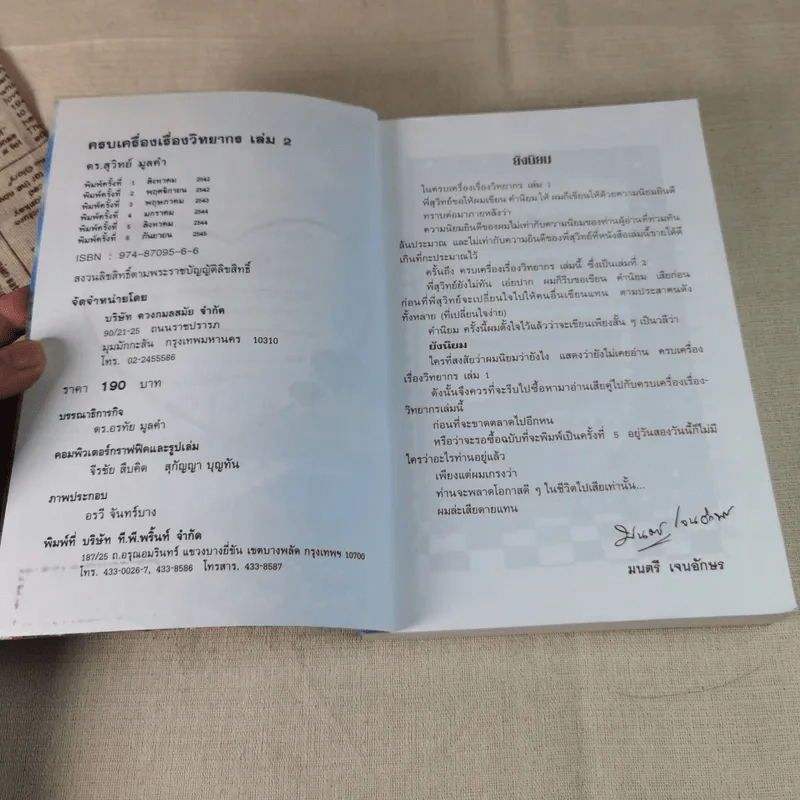 ครบเครื่องเรื่องวิทยากร เล่ม 2
ดร.สุวิทย์ มูลคำ
พิมพ์ครั้งที่ 1 สิงหาคม 2542
พิมพ์ครั้งที่ 2 พฤศจิกายน 2542
พิมพ์ครั้งที่ 3 พฤษภาคม 2543
พิมพ์ครั้งที่ 4 มกราคม 2544
พิมพ์ครั้งที่ 5 สิงหาคม 2544
พิมพ์ครั้งที่ 6 กันยายน 2545
ISBN : 974-87095-6-6
สงวนลิขสิทธิ์ตามพระราชบัญญัติลิขสิทธิ์
จัดจำหน่ายโดย
บริษัท ดวงกมลสมัย จำกัด
90/21-25 ถนนราชปรารภ
มุมมักกะสัน กรุงเทพมหานคร 10310
โทร. 02-2455586
ราคา 190 บาท
บรรณาธิการกิจ
ดร.อรทัย มูลคำ
คอมพิวเตอร์กราฟฟิคและรูปเล่ม
จีรชัย สืบคิด สุกัญญา บุญทัน
ภาพประกอบ
อรวี จันทร์บาง
พิมพ์ที่ บริษัท ที.พี.พริ้นท์ จำกัด
187/25 ถ.อรุณอมรินทร์ แขวงบางยี่ขัน เขตบางพลัด กรุงเทพฯ 10700
โทร. 433-0026-7, 433-8586 โทรสาร. 433-8587
ยังนิยม
ในครบเครื่องเรื่องวิทยากร เล่ม 1
พี่สุวิทย์ขอให้ผมเขียน คำนิยมให้ ผมก็เขียนให้ด้วยความนิยมยินดี
ทราบต่อมาภายหลังว่า
ความนิยมยินดีของผมไม่เท่ากับความนิยมของท่านผู้อ่านที่ท่วมท้น
ล้นประมาณ และไม่เท่ากับความยินดีของพี่สุวิทย์ที่หนังสือเล่มนี้ขายได้ดี
เกินที่กะประมาณไว้
ครั้นถึง ครบเครื่องเรื่องวิทยากร เล่มนี้ ซึ่งเป็นเล่มที่ 2
พี่สุวิทย์ยังไม่ทัน เอ่ยปาก ผมก็รีบขอเขียน คำนิยม เสียก่อน
ก่อนที่พี่สุวิทย์จะเปลี่ยนใจไปให้คนอื่นเขียนแทน ตามประสาคนดัง
ทั้งหลาย (ที่เปลี่ยนใจง่าย)
คำนิยม ครั้งนี้ผมตั้งใจไว้แล้วว่าจะเขียนเพียงสั้น ๆ เป็นวลีว่า
ยังนิยม
ใครที่สงสัยว่าผมนิยมว่ายังไง แสดงว่ายังไม่เคยอ่าน ครบเครื่อง
เรื่องวิทยากร เล่ม 1
ดังนั้นจึงควรที่จะรีบไปซื้อหามาอ่านเสียคู่ไปกับครบเครื่องเรื่อง-
วิทยากรเล่มนี้
ก่อนที่จะขาดตลาดไปอีกหน
หรือว่าจะรอซื้อฉบับที่จะพิมพ์เป็นครั้งที่ 5 อยู่วันสองวันนี้ก็ไม่มี
ใครว่าอะไรท่านอยู่แล้ว
เพียงแต่ผมเกรงว่า
ท่านจะพลาดโอกาสดี ๆ ในชีวิตไปเสียเท่านั้น...
ผมล่ะเสียดายแทน
มนตรี เจนอักษร
มนตรี เจนอักษร